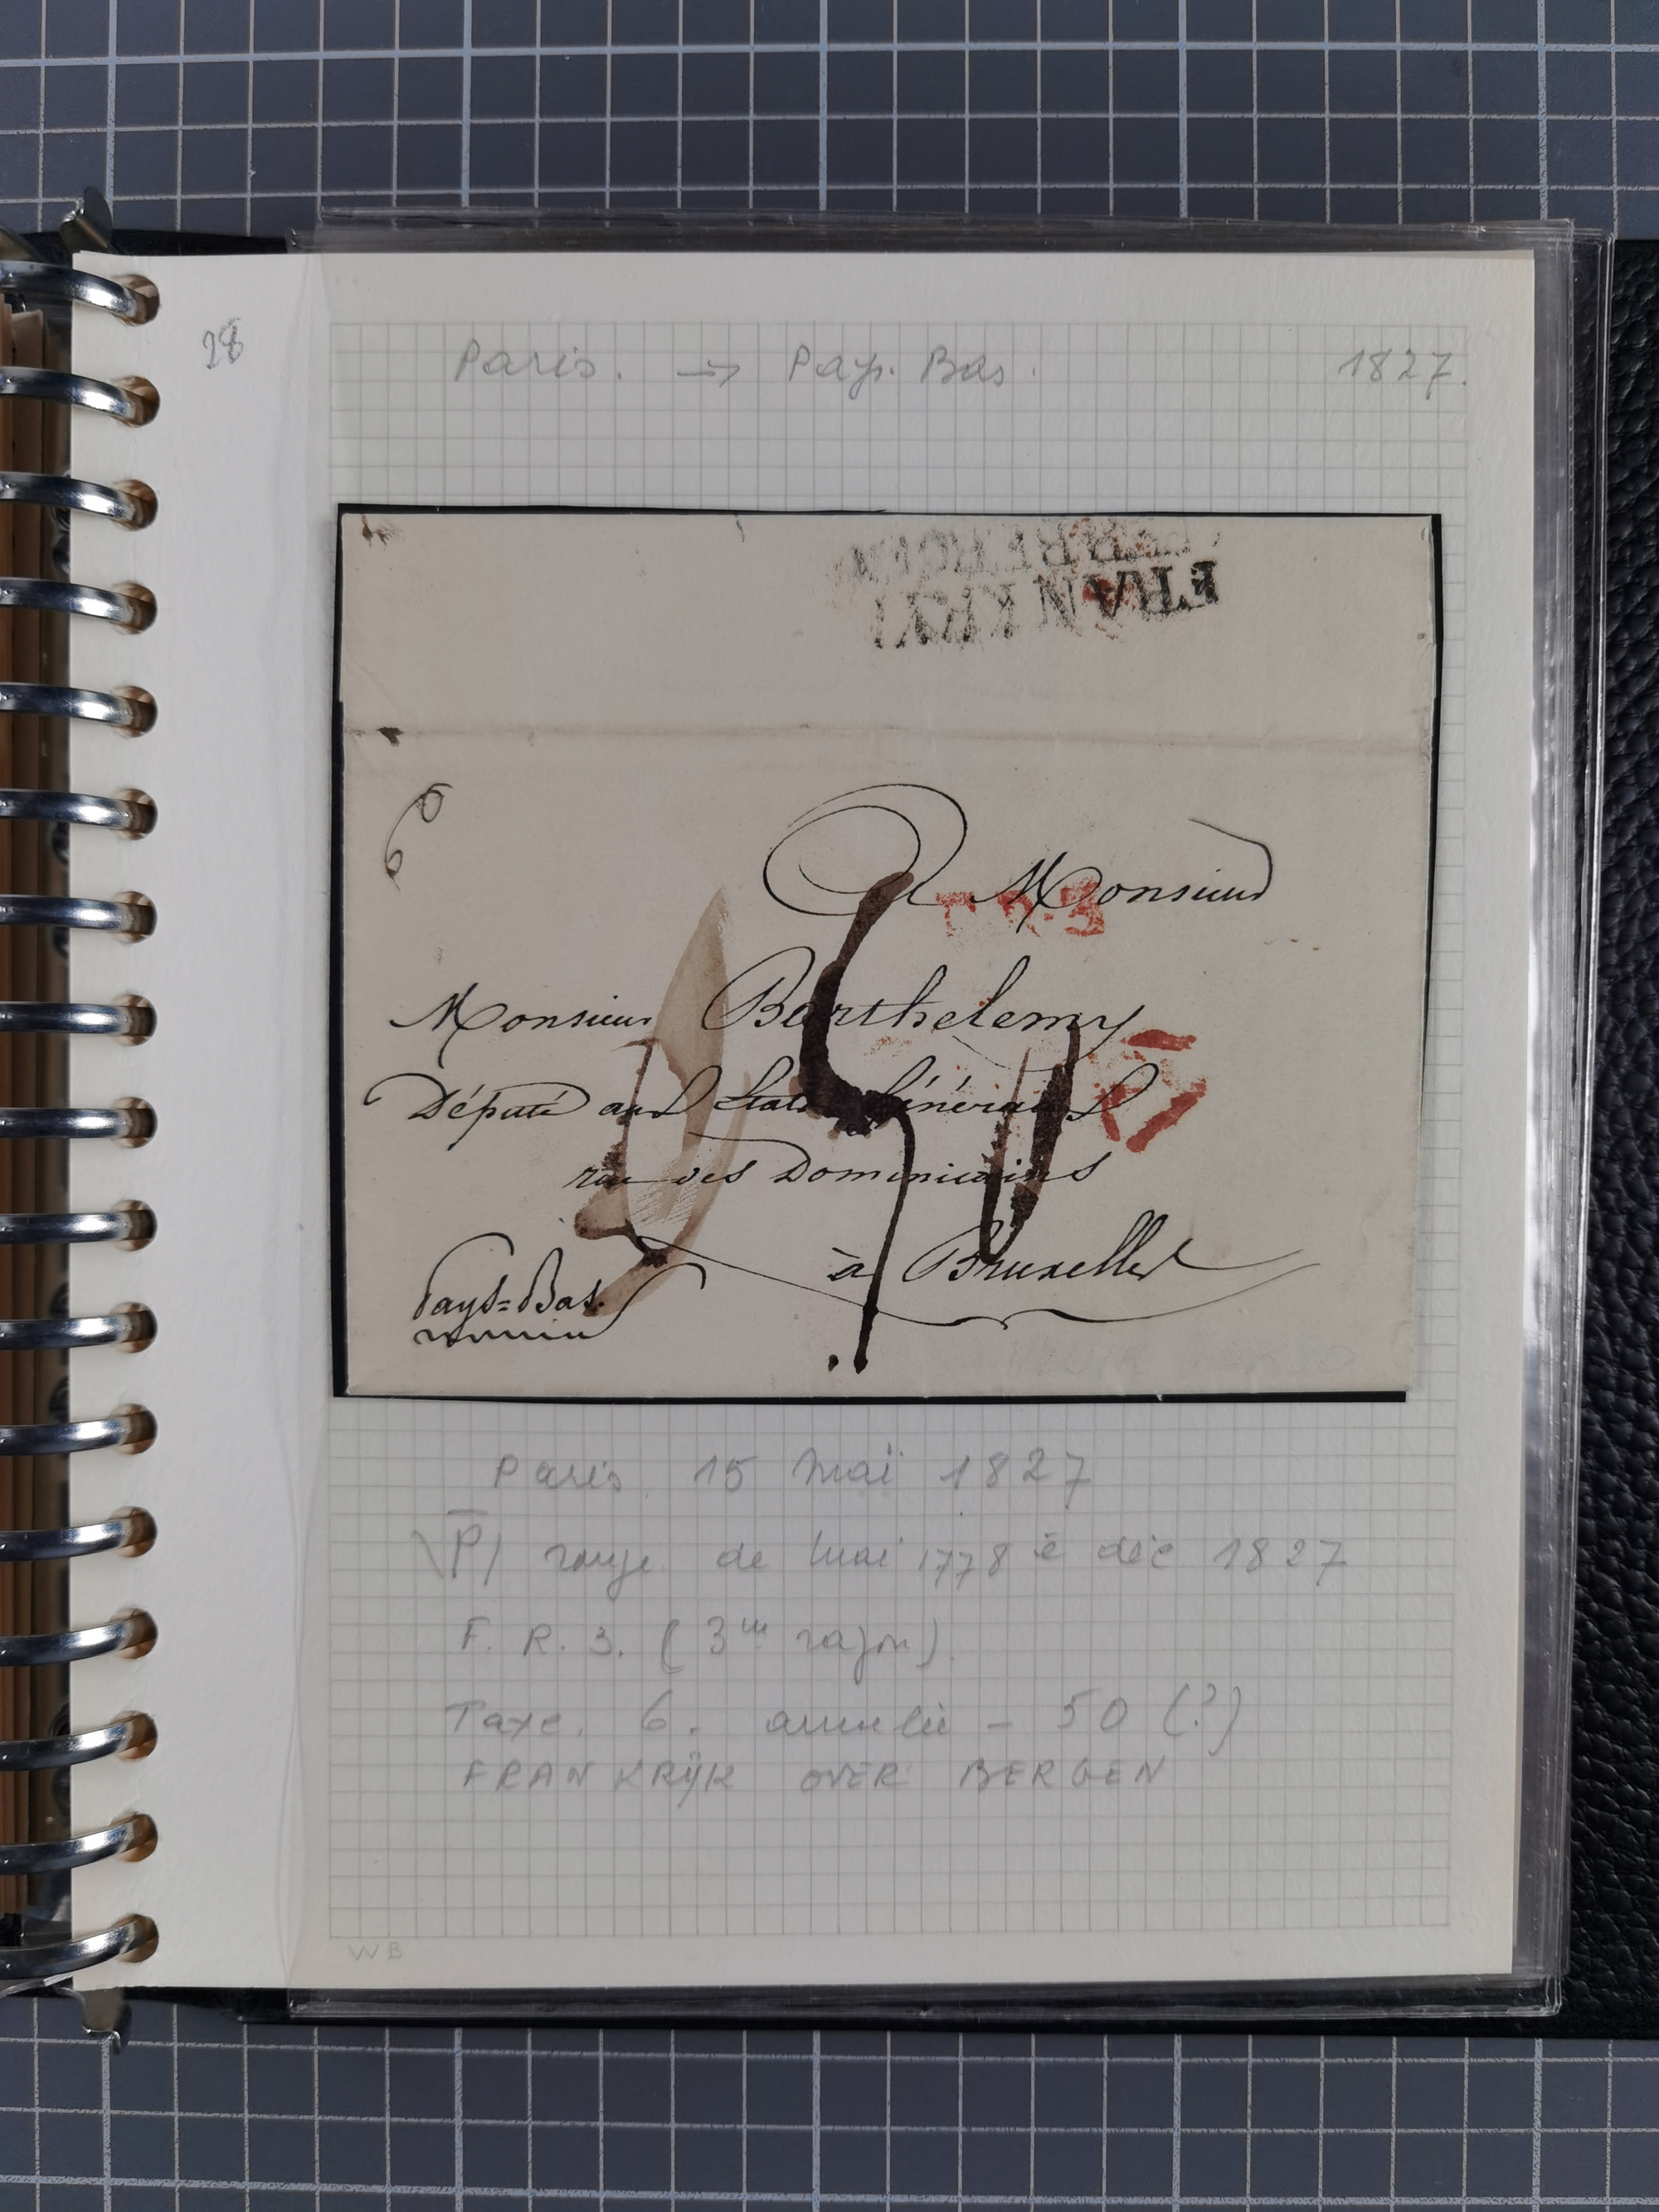 28
Paris. → Pays. Bas. 1827.
FRANKRYK
BERGEN
A Monsieur
Monsieur Barthelemy
Député aux Etats Généraux
rue des Dominicains
à Bruxelles
Pays=Bas.
Paris 15 Mai 1827
P rouge de Mai 1778 à déc 1827
F. R. 3. (3me rayon).
Taxe. 6. annulée - 50 (?)
FRANKRIJK OVER BERGEN
WB